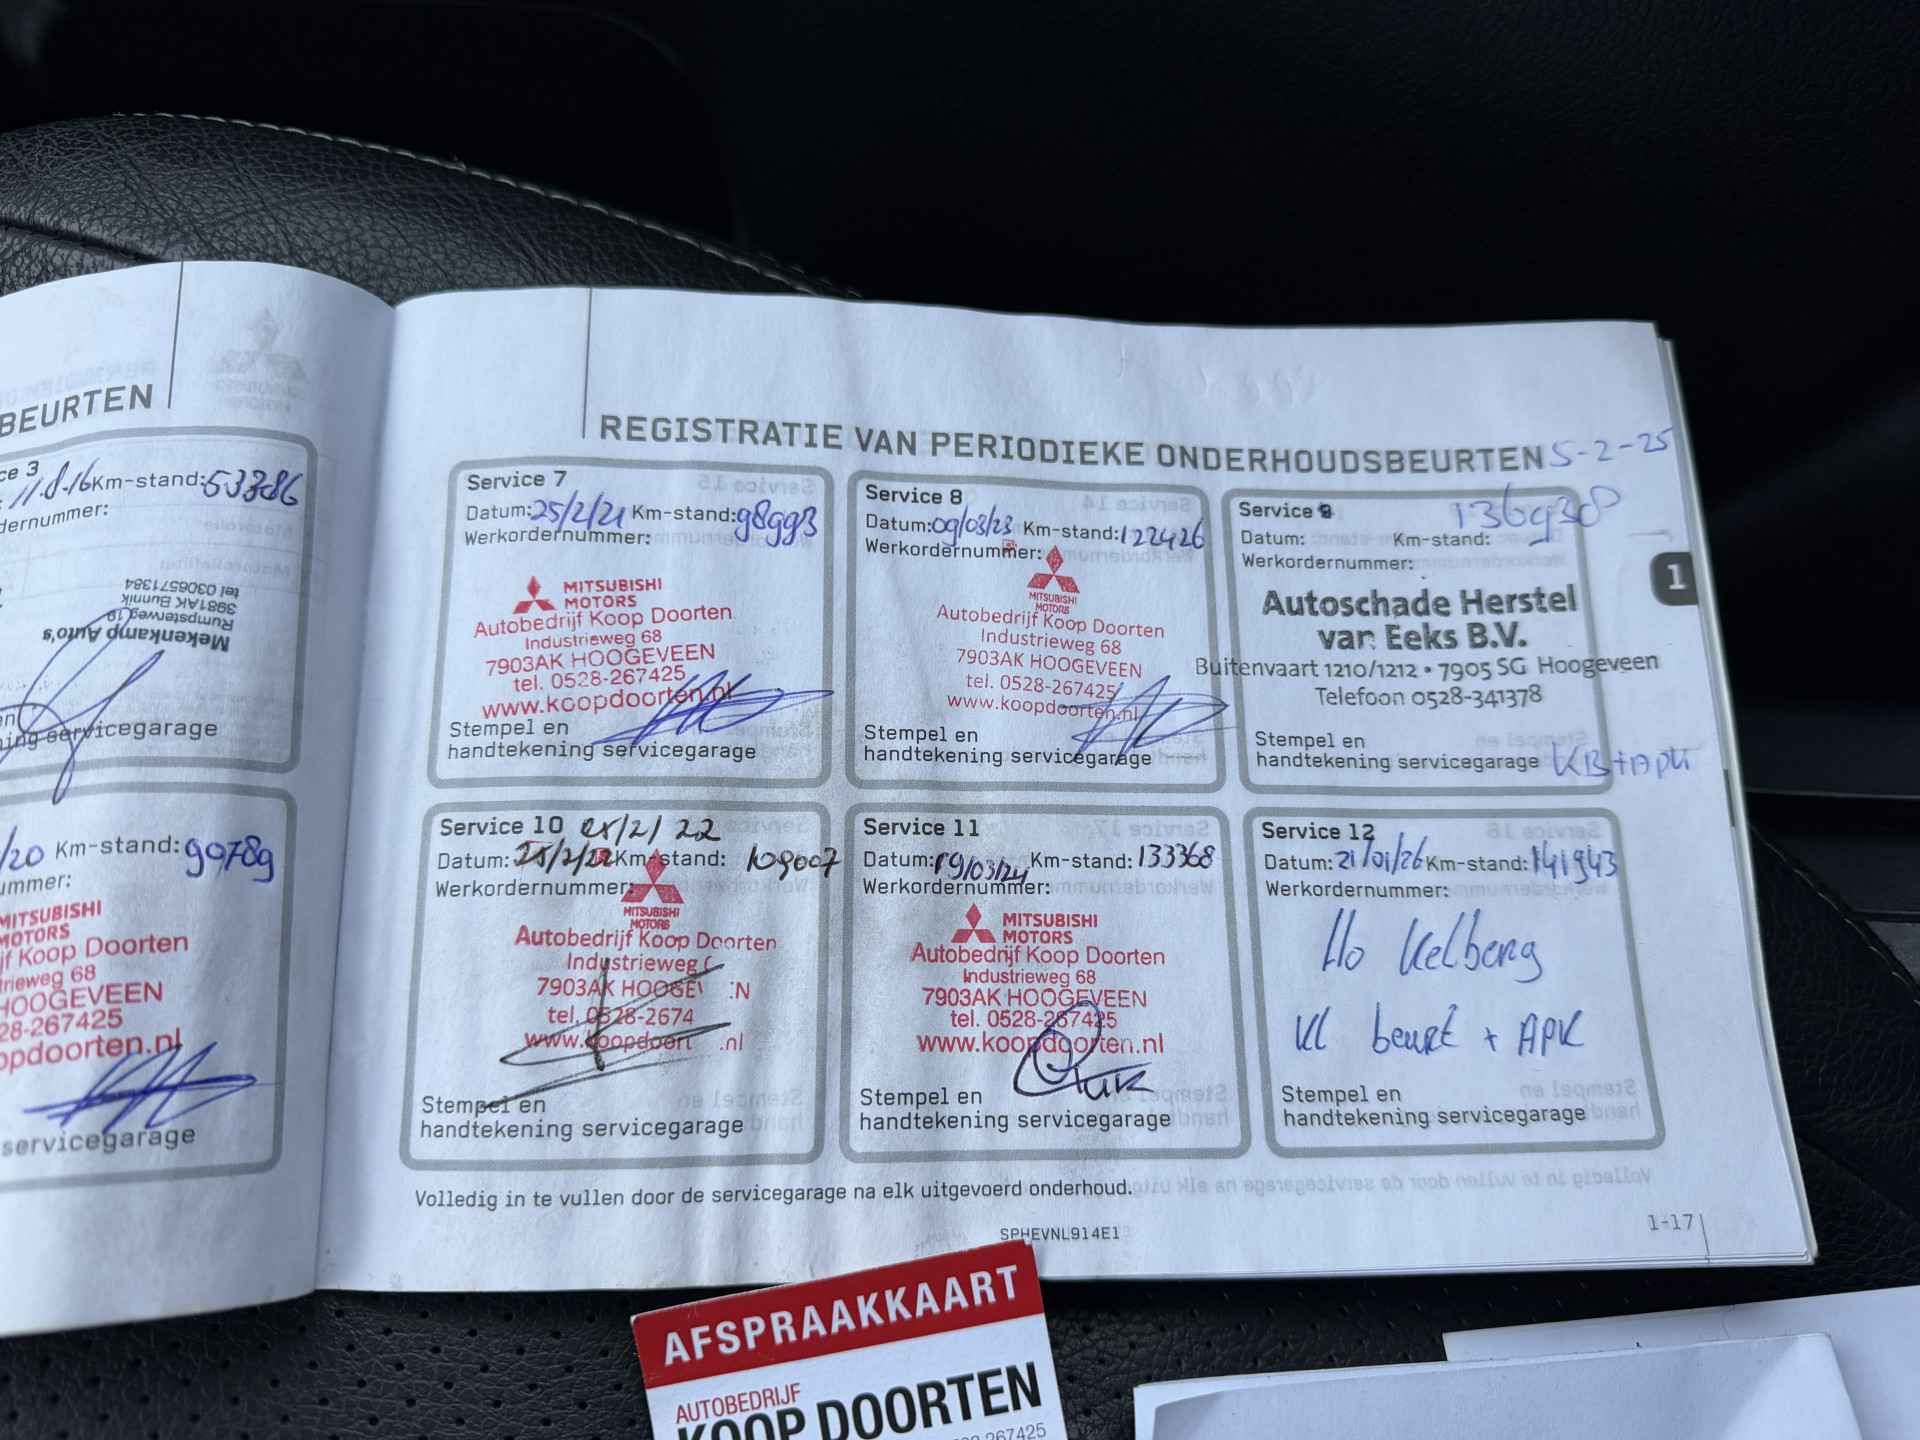 BEURTEN
ce 3
11-8-16 Km-stand: 53386
dernummer:
Mekenkamp Auto's
Rumpsterweg 19
3981AK Bunnik
tel 0306571384
ning servicegarage
/20 Km-stand: 90789
ummer:
MITSUBISHI
MOTORS
jf Koop Doorten
trieweg 68
HOOGEVEEN
28-267425
opdoorten.nl
servicegarage
REGISTRATIE VAN PERIODIEKE ONDERHOUDSBEURTEN 5-2-25
Service 7
Datum: 25/2/21 Km-stand: 98993
Werkordernummer:
MITSUBISHI
MOTORS
Autobedrijf Koop Doorten
Industrieweg 68
7903AK HOOGEVEEN
tel. 0528-267425
www.koopdoorten.nl
Stempel en
handtekening servicegarage
Service 8
Datum: 09/03/23 Km-stand: 122426
Werkordernummer:
MITSUBISHI
MOTORS
Autobedrijf Koop Doorten
Industrieweg 68
7903AK HOOGEVEEN
tel. 0528-267425
www.koopdoorten.nl
Stempel en
handtekening servicegarage
Service 9
136930
Datum: Km-stand:
Werkordernummer:
Autoschade Herstel
van Eeks B.V.
Buitenvaart 1210/1212 • 7905 SG Hoogeveen
Telefoon 0528-341378
Stempel en
handtekening servicegarage KB+APK
Service 10 25/2/22
Datum: 25/2/22 Km-stand: 109007
Werkordernummer:
MITSUBISHI
MOTORS
Autobedrijf Koop Doorten
Industrieweg
7903AK HOOGEV EN
tel. 0528-2674
www.koopdoort .nl
Stempel en
handtekening servicegarage
Service 11
Datum: 19/03/24 Km-stand: 133368
Werkordernummer:
MITSUBISHI
MOTORS
Autobedrijf Koop Doorten
Industrieweg 68
7903AK HOOGEVEEN
tel. 0528-267425
www.koopdoorten.nl
Stempel en
handtekening servicegarage
Service 12
Datum: 21/01/26 Km-stand: 141943
Werkordernummer:
Kelberg
Kl beurt + APK
Stempel en
handtekening servicegarage
1
Volledig in te vullen door de servicegarage na elk uitgevoerd onderhoud.
SPHEVNL914E1
1-17
AFSPRAAKKAART
AUTOBEDRIJF
KOOP DOORTEN
267425